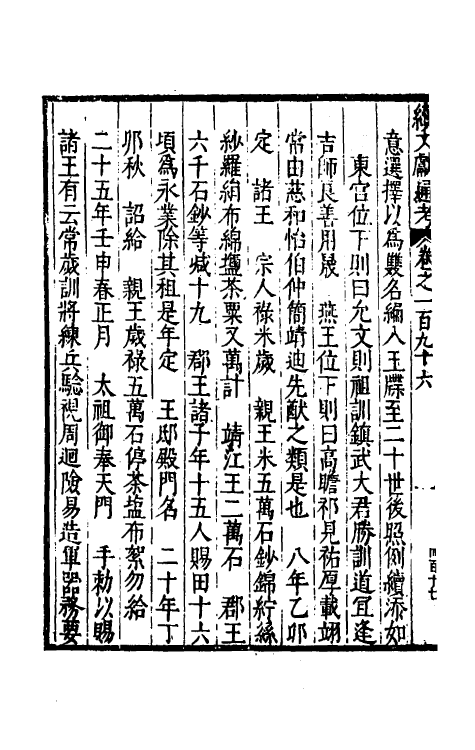 續文獻通考 卷之一百九十六
意選擇以爲雙名編入玉牒至二十世後照例續添如
東宫位下則曰允文則祖訓鎮武大君勝訓道宜逢
吉師良善用晟 燕王位下則曰高瞻祁見祐厚載翊
常由慈和怡伯仲簡靖迪先猷之類是也 八年乙卯
定 諸王 宗人祿米歲 親王米五萬石鈔錦紵絲
紗羅絹布綿塩茶粟又萬計 靖江王二萬石 郡王
六千石鈔等减十九 郡王諸子年十五人賜田十六
頃爲永業除其租是年定 王邸殿門名 二十年丁
夘秋 詔給 親王歲禄五萬石停茶塩布絮勿給
二十五年壬申春正月 太祖御奉天門 手勑以賜
諸王有云常歲訓將練兵驗視周迴險易造軍器務要